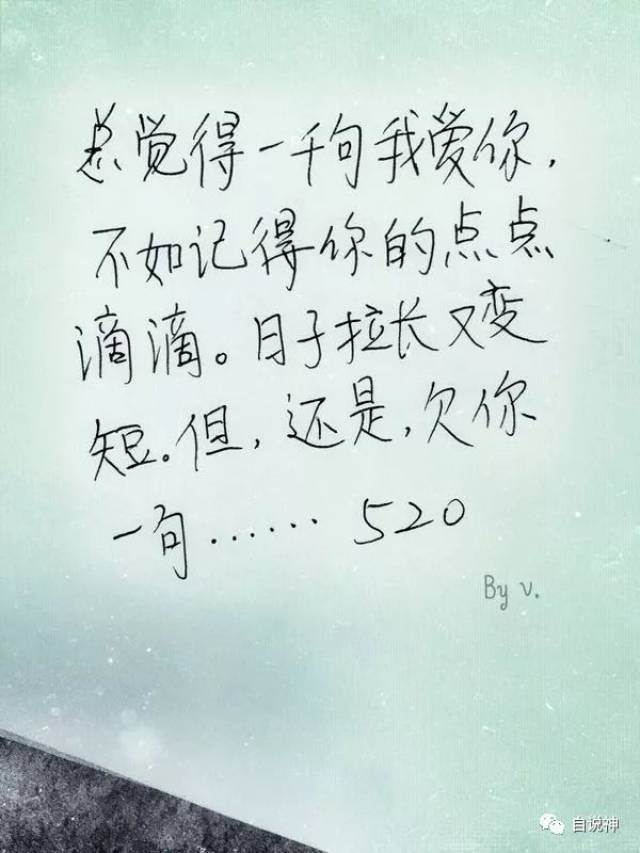 总觉得一千句我爱你，
不如记得你的点点
滴滴。日子拉长又变
短。但，还是，欠你
一句……520
By v.
自说神